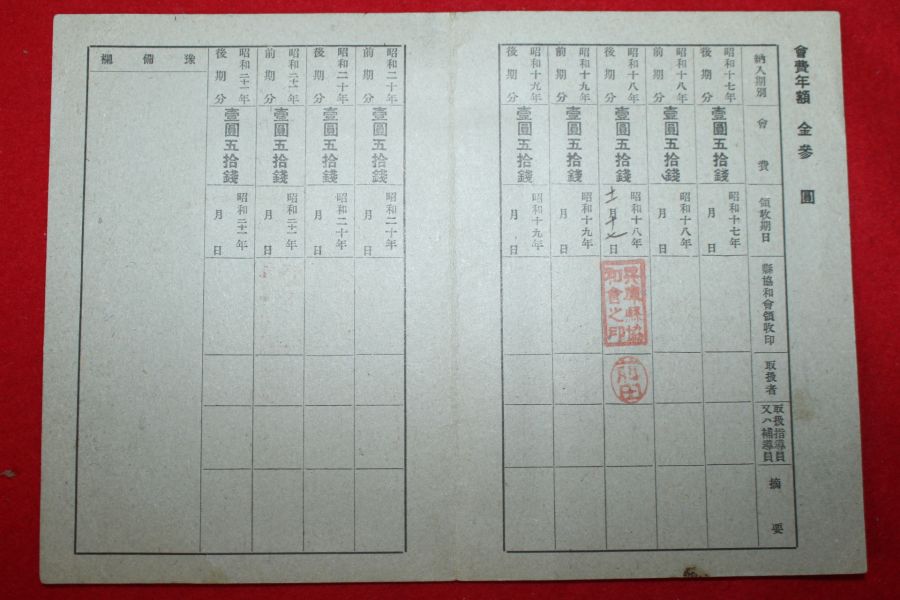 會費年額 金參圓
納入期別 會費 領收期日 縣協和會領收印 取扱者 取扱指導員又ハ補導員 摘要
昭和十七年後期分 壹圓五拾錢 昭和十七年 月 日
昭和十八年前期分 壹圓五拾錢 昭和十八年 月 日
昭和十八年後期分 壹圓五拾錢 昭和十八年 月 日 兵庫縣協和會之印 前田
昭和十九年前期分 壹圓五拾錢 昭和十九年 月 日
昭和十九年後期分 壹圓五拾錢 昭和十九年 月 日
昭和二十年前期分 壹圓五拾錢 昭和二十年 月 日
昭和二十年後期分 壹圓五拾錢 昭和二十年 月 日
昭和二十一年前期分 壹圓五拾錢 昭和二十一年 月 日
昭和二十一年後期分 壹圓五拾錢 昭和二十一年 月 日
豫備欄